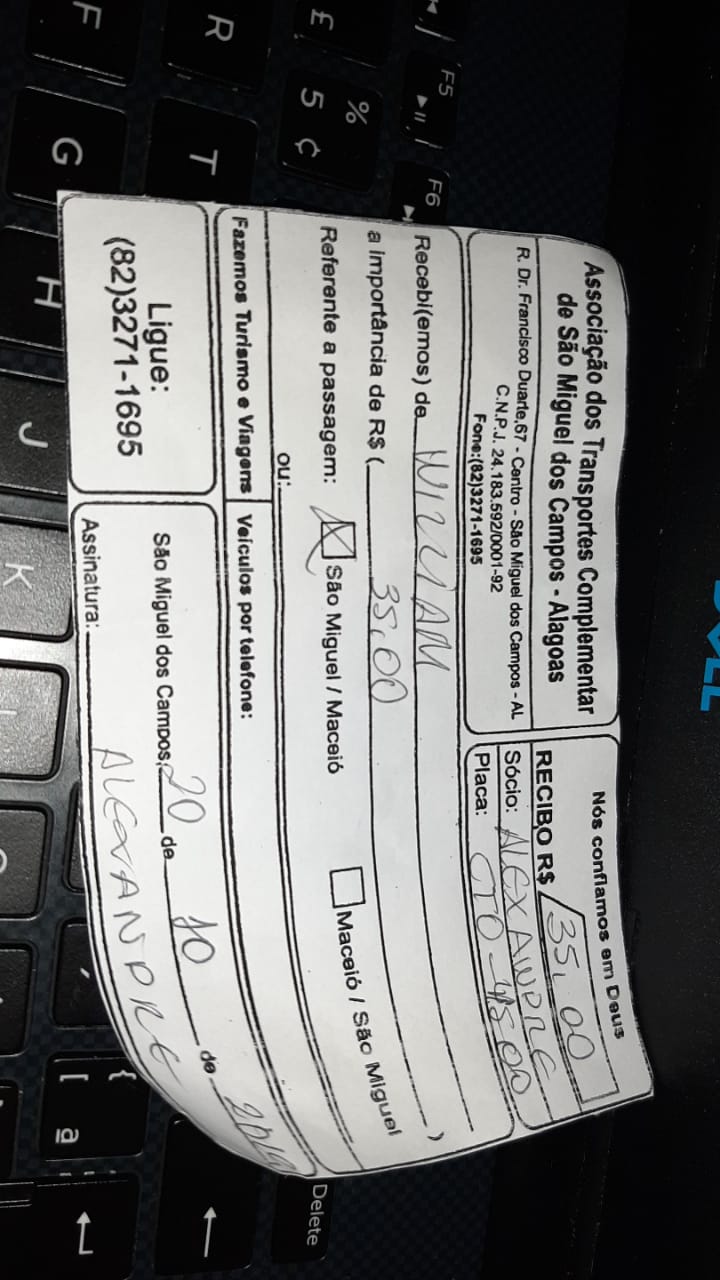 Associação dos Transportes Complementar
de São Miguel dos Campos - Alagoas
R. Dr. Francisco Duarte,67 - Centro - São Miguel dos Campos - AL
C.N.P.J. 24.183.592/0001-92
Fone:(82)3271-1695
Nós confiamos em Deus
RECIBO R$ 35,00
Sócio: ALEXANDRE
Placa:
Recebi(emos) de WILLIAM
a importância de R$ ( 35,00 )
Referente a passagem: X São Miguel / Maceió Maceió / São Miguel
ou:
Fazemos Turismo e Viagens Veículos por telefone:
Ligue:
(82)3271-1695
São Miguel dos Campos, 20 de 10 de
Assinatura: ALEXANDRE
DELL
F5
F6
% 5 ¢
£
R
T
F
G
H
J
K
Delete
{ [ ª